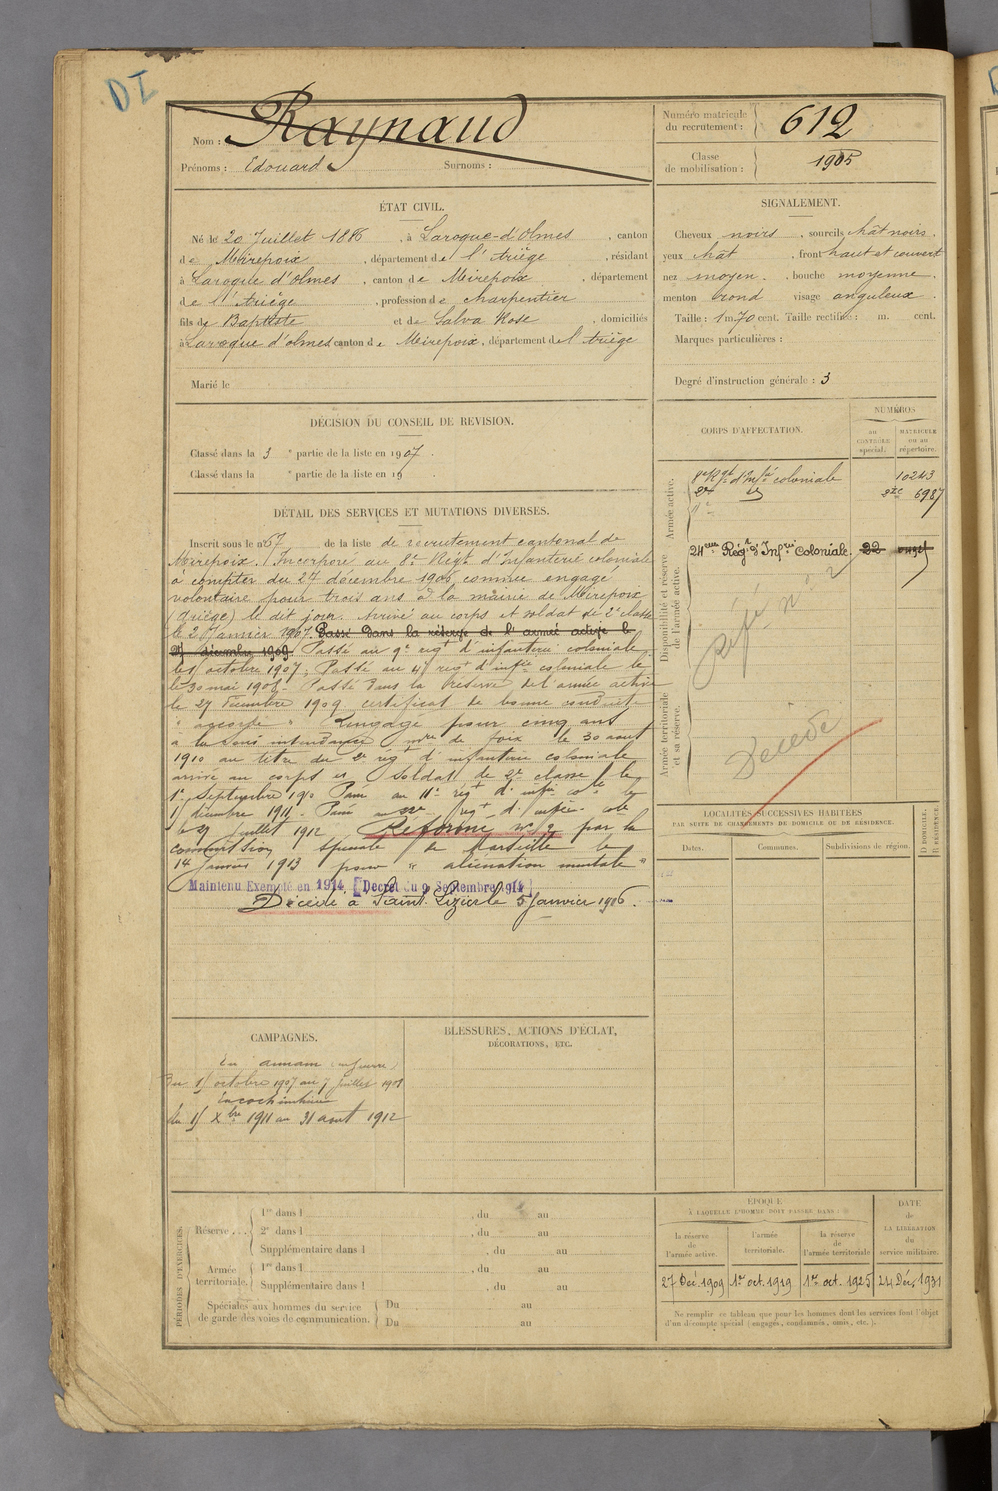 DI
Nom : Raynaud
Prénoms : Edouard Surnoms :
Numéro matricule du recrutement : 612
Classe de mobilisation : 1905
ÉTAT CIVIL.
Né le 20 Juillet 1886, à Laroque-d'Olmes, canton
de Mirepoix, département de l'Ariège, résidant
à Laroque d'olmes, canton de Mirepoix, département
de l'Ariège, profession de charpentier
fils de Baptiste et de Salva Rose, domiciliés
à Laroque d'olmes canton de Mirepoix, département de l'Ariège
Marié le
SIGNALEMENT.
Cheveux noirs, sourcils chât noirs,
yeux chât, front haut et couvert
nez moyen, bouche moyenne
menton rond visage anguleux.
Taille : 1 m. 70 cent. Taille rectifiée : m. cent.
Marques particulières :
Degré d'instruction générale : 3
DÉCISION DU CONSEIL DE REVISION.
Classé dans la 3e partie de la liste en 1907.
Classé dans la e partie de la liste en 19
DÉTAIL DES SERVICES ET MUTATIONS DIVERSES.
Inscrit sous le n° 67 de la liste de recrutement cantonal de
Mirepoix. Incorporé au 8e Régt d'Infanterie coloniale
à compter du 27 décembre 1906, comme engagé
volontaire pour trois ans à la mairie de Mirepoix
(Ariège) le dit jour. Arrivé au corps et soldat de 2e classe
le 2 Janvier 1907. Passé dans la réserve de l'armée active le
27 décembre 1909. Passé au 9e régt d'infanterie coloniale
le 1 octobre 1907, Passé au régt d'inftie coloniale le
le 30 mai 1908. Passé dans la Réserve de l'armée active
le 27 Décembre 1909 certificat de bonne conduite
"accordé" Rengagé pour cinq ans
à la sous intendance mre de Foix le 30 aout
1910 au titre du 2e régt d'infanterie coloniale
arrivé au corps et soldat de 2e classe le
1er Septembre 1910 Passé au 11e régt d'inftie cole le
décembre 1911. Passé au 22e régt d'inftie cole
le Juillet 1912 Réformé n° 2 par la
commission spéciale de Marseille le
14 Janvier 1913 pour "aliénation mentale"
Maintenu Exempté en 1914 [Decret du 9 Septembre 1914]
Décédé à Saint-Lizier le 5 Janvier 1926.
CORPS D'AFFECTATION.
NUMÉROS
au CONTRÔLE spécial.
MATRICULE ou au répertoire.
Armée active.
8e Rgt d'Inftie coloniale 10243
2e 6987
11e
Disponibilité et réserve de l'armée active.
24eme Régt d'Infrie Coloniale. 22
Réfé n° 2
Armée territoriale et sa réserve.
Décédé
LOCALITÉS SUCCESSIVES HABITÉES
PAR SUITE DE CHANGEMENTS DE DOMICILE OU DE RÉSIDENCE.
Dates. Communes. Subdivisions de région. D DOMICILE. R RÉSIDENCE.
CAMPAGNES.
En annam (en guerre)
Du octobre 1907 au 7 Juillet 1908
En cochinchine
Du Xbre 1911 au 31 aout 1912
BLESSURES, ACTIONS D'ÉCLAT,
DÉCORATIONS, ETC.
PÉRIODES D'EXERCICES.
Réserve . . .
1re dans l , du au
2e dans l , du au
Supplémentaire dans l , du au
Armée territoriale.
1re dans l , du au
Supplémentaire dans l , du au
Spéciales aux hommes du service de garde des voies de communication.
Du au
Du au
EPOQUE
À LAQUELLE L'HOMME DOIT PASSER DANS :
la réserve de l'armée active.
l'armée territoriale.
la réserve de l'armée territoriale
DATE de LA LIBÉRATION du service militaire.
27 Déc. 1909 1er oct. 1919 1er oct. 1925 24 Déc. 1931
Ne remplir ce tableau que pour les hommes dont les services font l'objet
d'un décompte spécial (engagés, condamnés, omis, etc.).